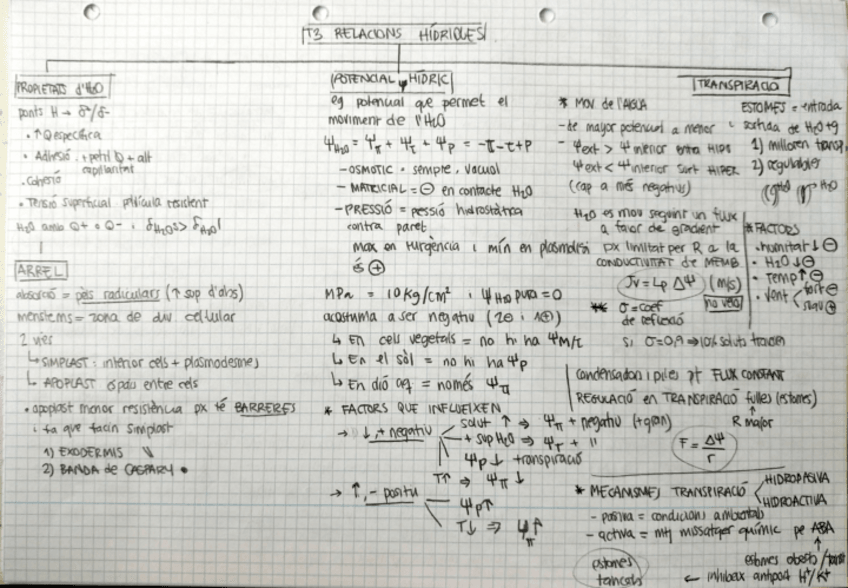 T3 RELACIONS HÍDRIQUES
PROPIETATS d'H2O
ponts H → δ+/δ-
· ↑Q específica
· Adhesió: + petit Q + alt
capil·laritat
· Cohesió
· Tensió superficial pel·lícula resistent
H2O amb Q+ o Q- i δH2O(s) > δH2O l
ARREL
absorció = pèls radiculars (↑ sup d'abs)
meristems = zona de div cel·lular
2 vies
↳ SIMPLAST: interior cels + plasmodesmes
↳ APOPLAST espai entre cels
· apoplast menor resistència px té BARRERES
i fa que facin simplast
1) EXODERMIS
2) BANDA de CASPARY
POTENCIAL HÍDRIC
eg potencial que permet el
moviment de l'H2O
ΨH2O = Ψπ + Ψτ + Ψp = -π - τ + P
- OSMÒTIC · sempre, vacuol
- MATRICIAL = ⊖ en contacte H2O
- PRESSIÓ = pessió hidrostàtica
contra paret
max en turgència i mín en plasmòlisi
és ⊕
MPa = 10 Kg/cm² i ΨH2O pura = 0
acostuma a ser negatiu (2⊖ i 1⊕)
↳ En cels vegetals = no hi ha ΨM/τ
↳ En el sòl = no hi ha Ψp
↳ En dió aq = només Ψπ
* FACTORS QUE INFLUEIXEN
→ ↓, + negatiu
solut ↑ ⇒ Ψπ + negatiu (+gran)
+ sup H2O ⇒ Ψτ + "
Ψp ↓ + transpiració
T↑ ⇒ Ψπ ↓
→ ↑, - positiu
Ψp ↑
T↓ ⇒ Ψπ ↑
TRANSPIRACIÓ
* MOV de l'AIGUA
- de major potencial a menor
- Ψext > Ψinterior entra HIPO
Ψext < Ψinterior surt HIPER
(cap a més negatiu)
H2O es mou seguint un flux
a favor de gradient
px limitat per R a la
CONDUCTIVITAT de MEMB
Jv = Lp ΔΨ (m/s)
no veig
** σ = coef
de reflexió
si σ=0,9 ⇒ 10% soluts traven
ESTOMES = entrada
i sortida de H2O + g
1) milloren transp.
2) regulables
H2O
* FACTORS
· humitat ↓ ⊖
· H2O ↓ ⊖
· Temp ↑ ⊖
· Vent < fort ⊖
suau ⊕
condensadors i piles pt FLUX CONSTANT
REGULACIÓ en TRANSPIRACIÓ fulles (estomes)
R major
F = ΔΨ/r
* MECANISMES TRANSPIRACIÓ
HIDROPASIVA
HIDROACTIVA
- pasiva = condicions ambientals
- activa = mtj missatger químic pe ABA
inhibeix antiport H+/K+
estomes
tancats